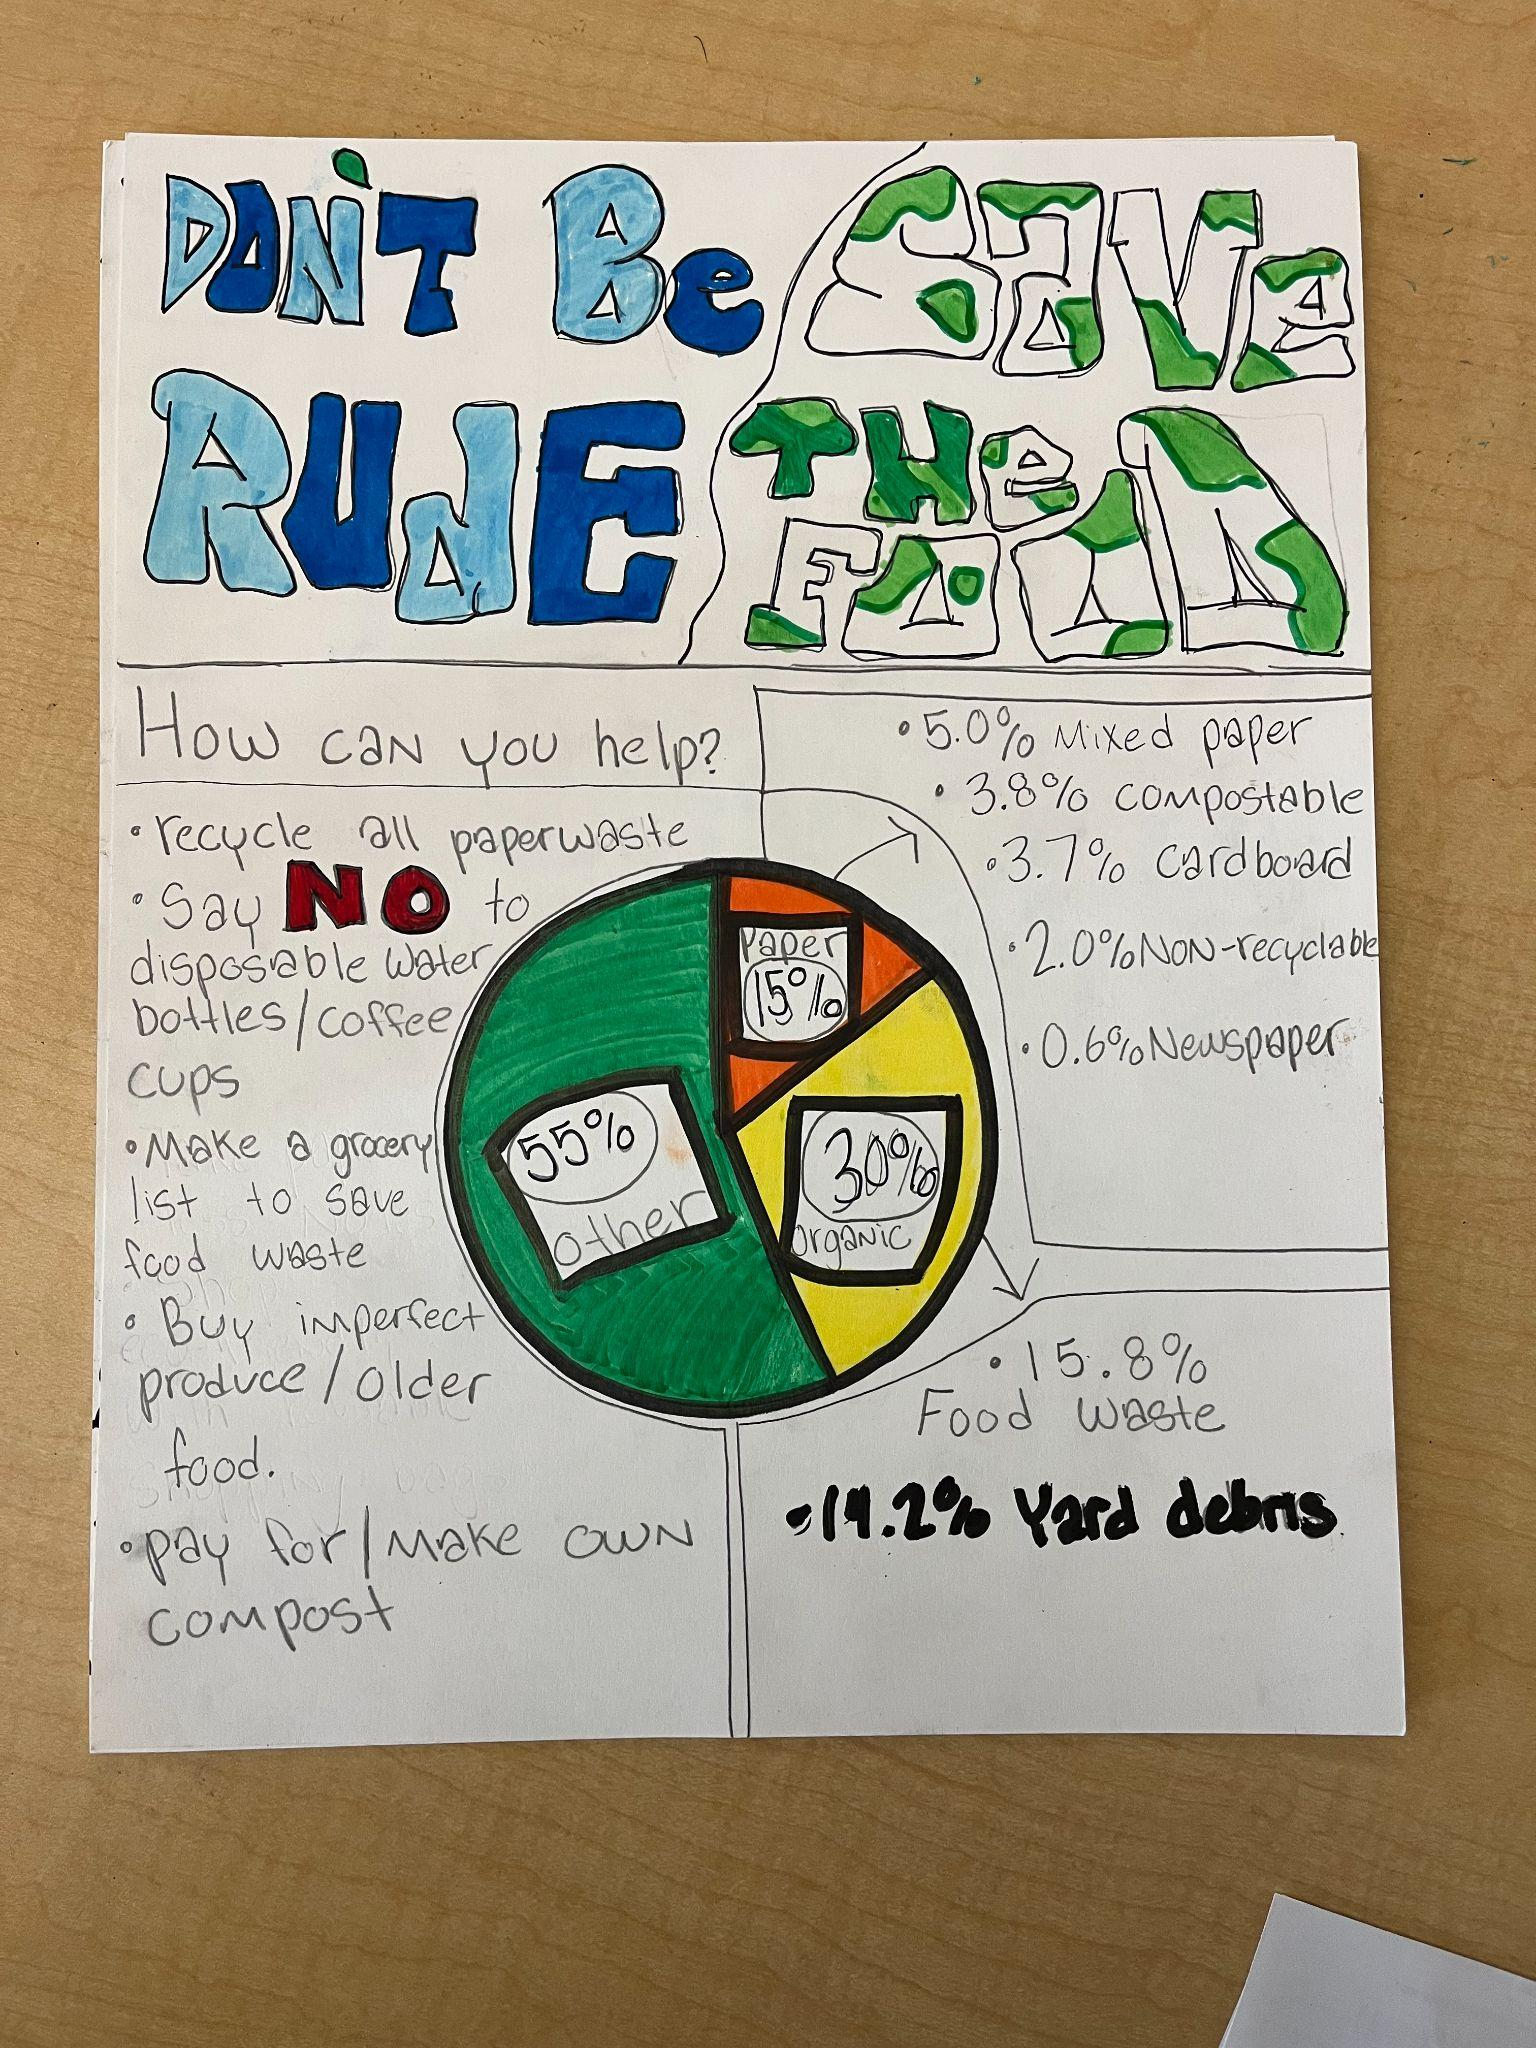 DON'T Be
RUDE
Save
THe
FooD
How can you help?
• recycle all paperwaste
• Say NO to
disposable water
bottles/coffee
cups
• Make a grocery
list to save
food waste
• Buy imperfect
produce/older
food.
• pay for/make own
compost
Paper
15%
55%
other
30%
organic
• 5.0% Mixed paper
• 3.8% compostable
• 3.7% Cardboard
• 2.0% Non-recyclable
• 0.6% Newspaper
• 15.8%
Food waste
• 14.2% Yard debris